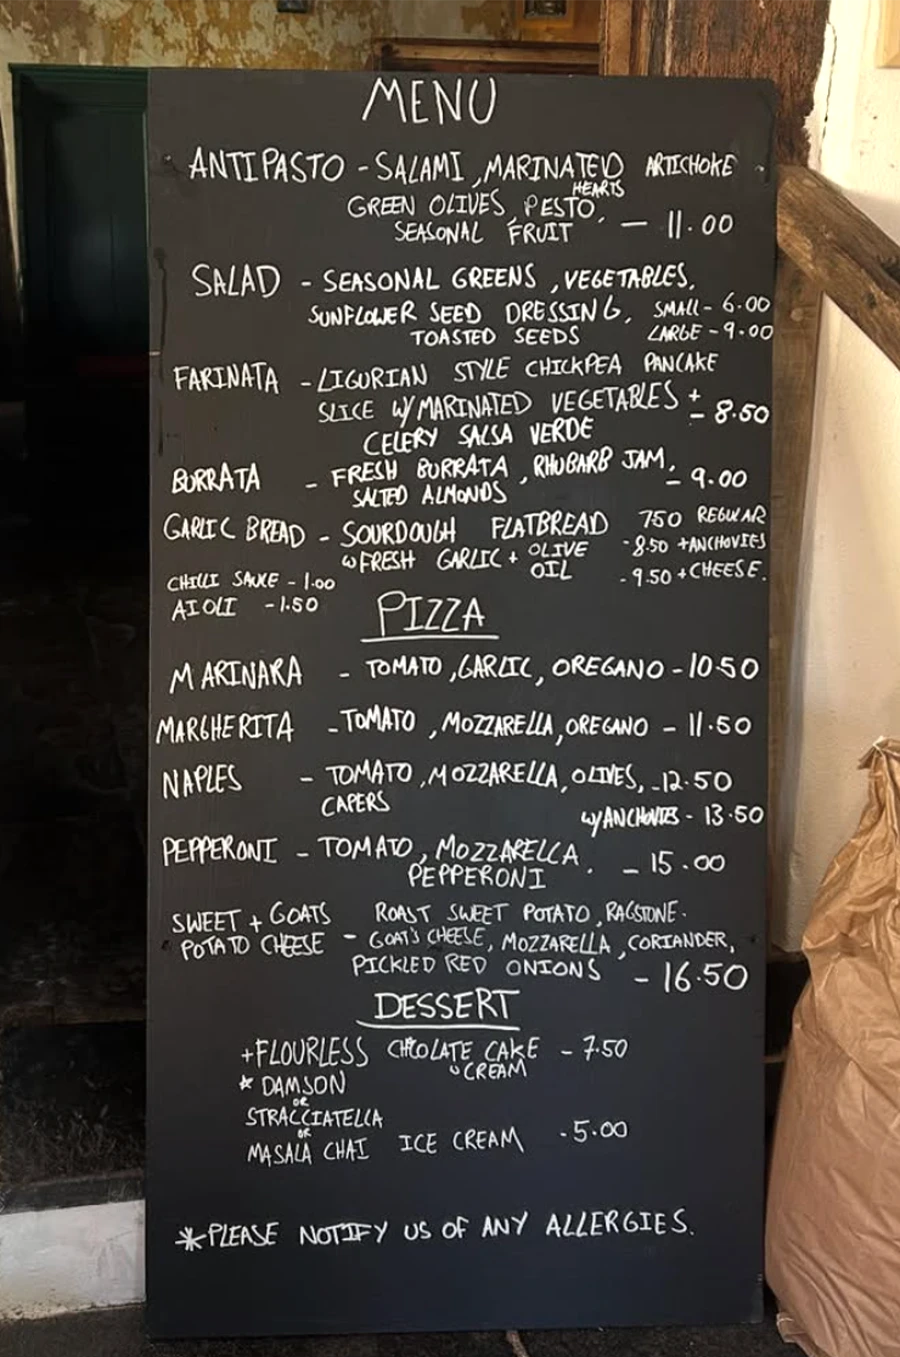 MENU
ANTIPASTO - SALAMI, MARINATED ARTICHOKE
HEARTS
GREEN OLIVES, PESTO,
SEASONAL FRUIT — 11.00
SALAD - SEASONAL GREENS, VEGETABLES,
SUNFLOWER SEED DRESSING, SMALL - 6.00
TOASTED SEEDS LARGE - 9.00
FARINATA - LIGURIAN STYLE CHICKPEA PANCAKE
SLICE W/ MARINATED VEGETABLES +
CELERY SALSA VERDE - 8.50
BURRATA - FRESH BURRATA, RHUBARB JAM,
SALTED ALMONDS - 9.00
GARLIC BREAD - SOURDOUGH FLATBREAD 750 REGULAR
W FRESH GARLIC + OLIVE - 8.50 + ANCHOVIES
OIL - 9.50 + CHEESE.
CHILLI SAUCE - 1.00
AIOLI - 1.50
PIZZA
MARINARA - TOMATO, GARLIC, OREGANO - 10.50
MARGHERITA - TOMATO, MOZZARELLA, OREGANO - 11.50
NAPLES - TOMATO, MOZZARELLA, OLIVES, - 12.50
CAPERS W/ ANCHOVIES - 13.50
PEPPERONI - TOMATO, MOZZARELLA.
PEPPERONI - 15.00
SWEET + GOATS ROAST SWEET POTATO, RAGSTONE.
POTATO CHEESE - GOAT'S CHEESE, MOZZARELLA, CORIANDER,
PICKLED RED ONIONS - 16.50
DESSERT
+ FLOURLESS CHOCOLATE CAKE - 7.50
W CREAM
* DAMSON
OR
STRACCIATELLA
OR
MASALA CHAI ICE CREAM - 5.00
* PLEASE NOTIFY US OF ANY ALLERGIES.